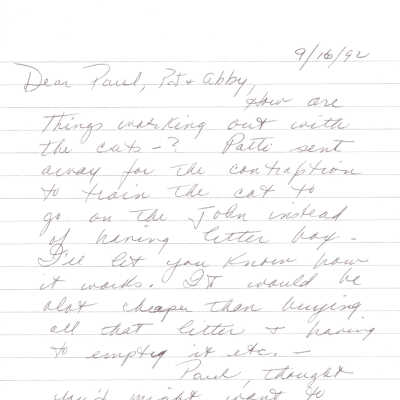 9/16/92
Dear Paul, Pat + Abby,
How are
things working out with
the cats-? Patti sent
away for the contraption
to train the cat to
go on the John instead
of having litter box -
I'll let you know how
it works. It would be
alot cheaper than buying
all that litter + having
to empty it etc. -
Paul, thought
you'd might want to